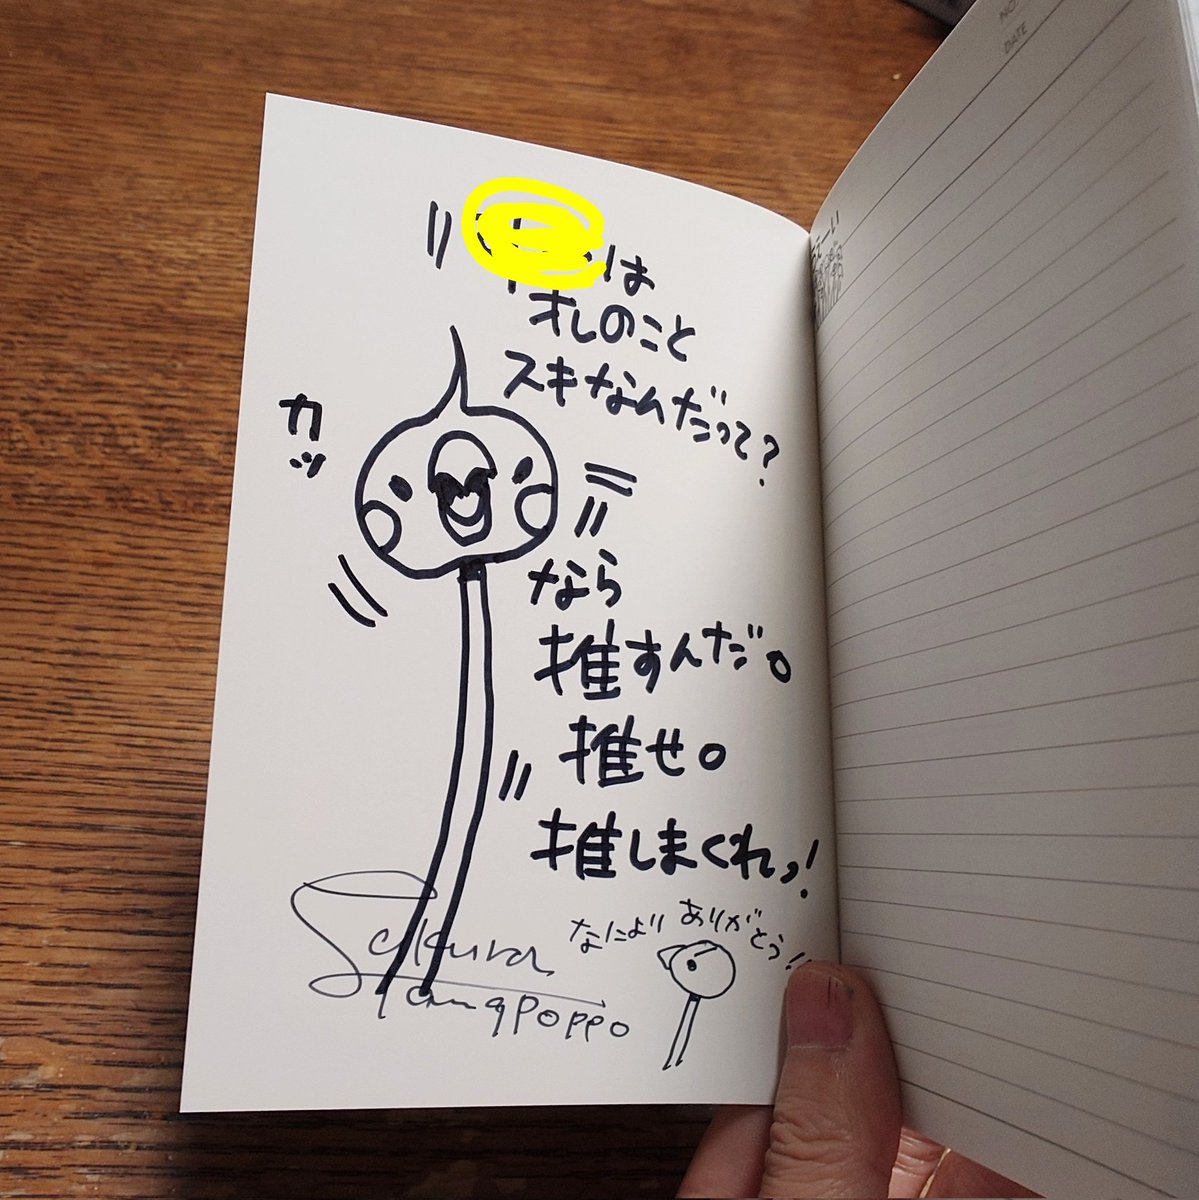 は
オレのこと
スキなんだって?
カッ
なら
推すんだ。
推せ。
推しまくれっ!
なにより ありがとう!!
Sakura
NO.
DATE